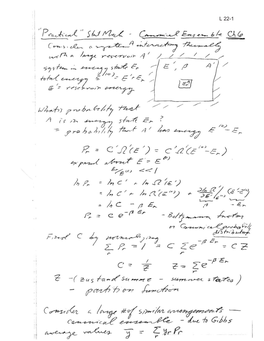 L 22-1
"Practical" Stat Mech - Canonical Ensemble Ch6
Consider a system A interacting thermally
with a large reservoir A'
system in energy state En
total energy E⁽⁰⁾ = E' + En
E' is reservoir energy
E', β A'
What is probability that
A is in an energy state En?
= probability that A' has energy E⁽⁰⁾-En
Pn = C'Ω'(E') = C'Ω'(E⁽⁰⁾-En)
expand about E' = E⁽⁰⁾
En/E⁽⁰⁾ << 1
ln Pn = ln C' + ln Ω'(E')
= ln C' + ln Ω'(E⁽⁰⁾) + ∂lnΩ'/∂E' (E'-E⁽⁰⁾)
= ln C - βEn
Pn = C e^-βEn - Boltzmann factor
or Canonical probability
distribution
Find C by normalizing
Σ Pn = 1 = C Σ e^-βEn = C Z
C = 1/Z Z = Σ e^-βEn
Z - (Zustandsumme - sum over states)
partition function
Consider a large # of similar arrangements -
canonical ensemble - due to Gibbs
average values ȳ = Σ yr Pr